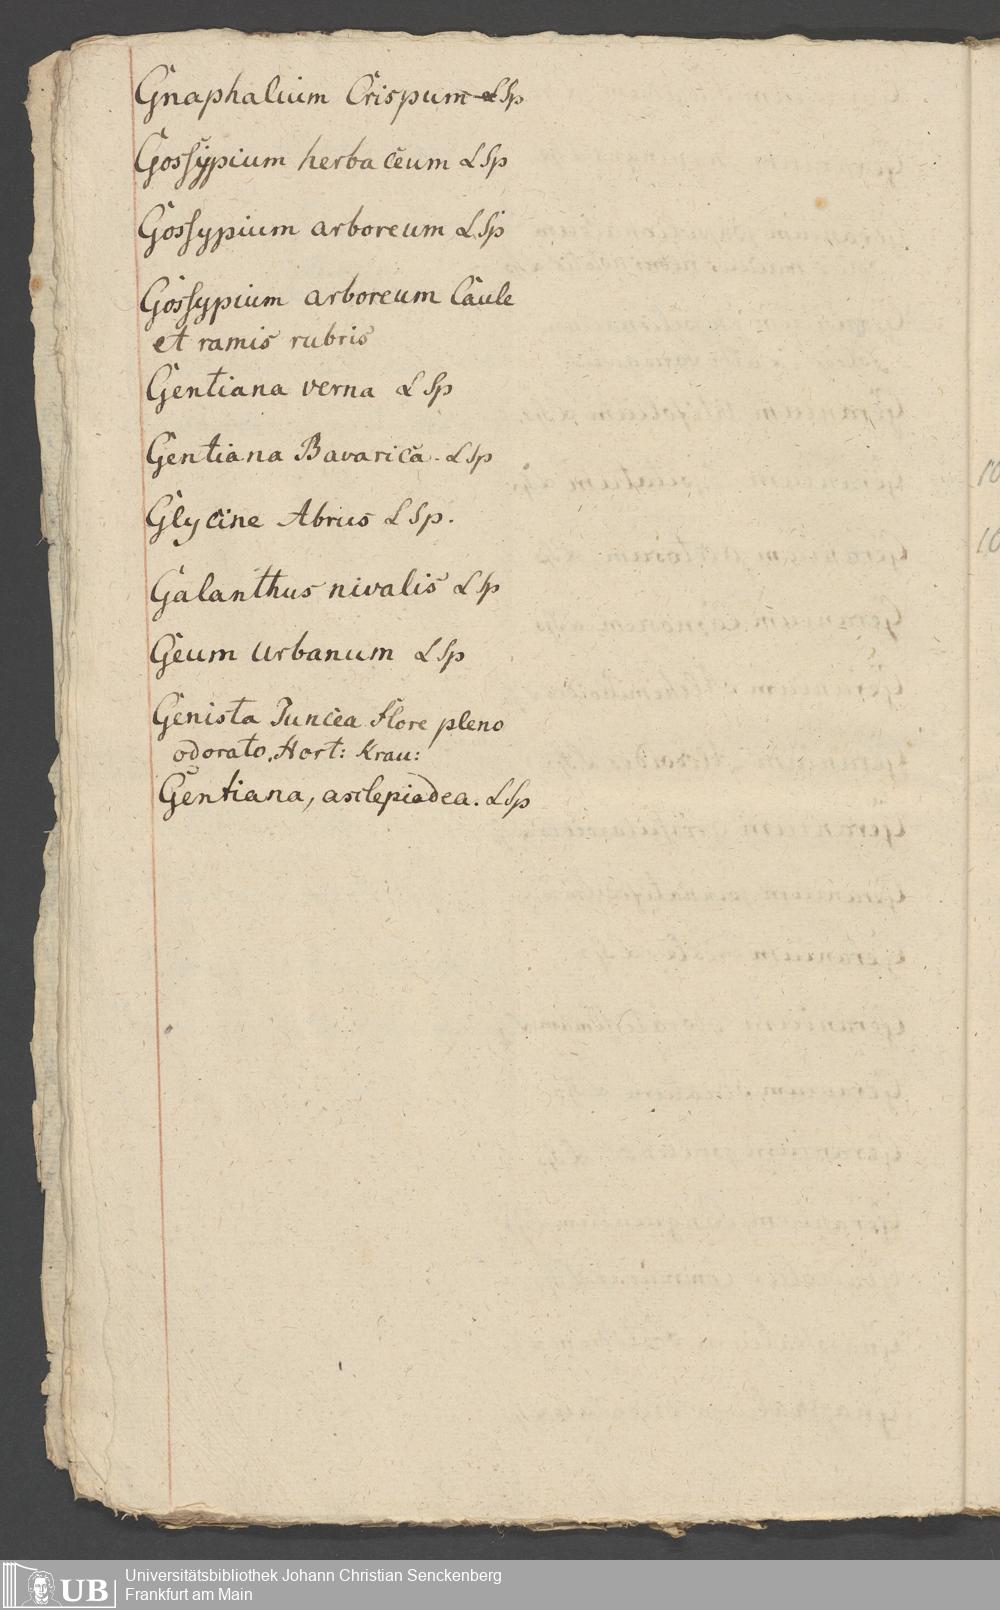 Gnaphalium Crispum LSp
Gossypium herbaceum LSp
Gossypium arboreum LSp
Gossypium arboreum Caule
et ramis rubris
Gentiana verna LSp
Gentiana Bavarica. LSp
Glycine Abrus LSp.
Galanthus nivalis LSp
Geum Urbanum LSp
Genista Juncea flore pleno
odorato. Hort: Krau:
Gentiana, asclepiadea. LSp
10
10
UB
Universitätsbibliothek Johann Christian Senckenberg
Frankfurt am Main